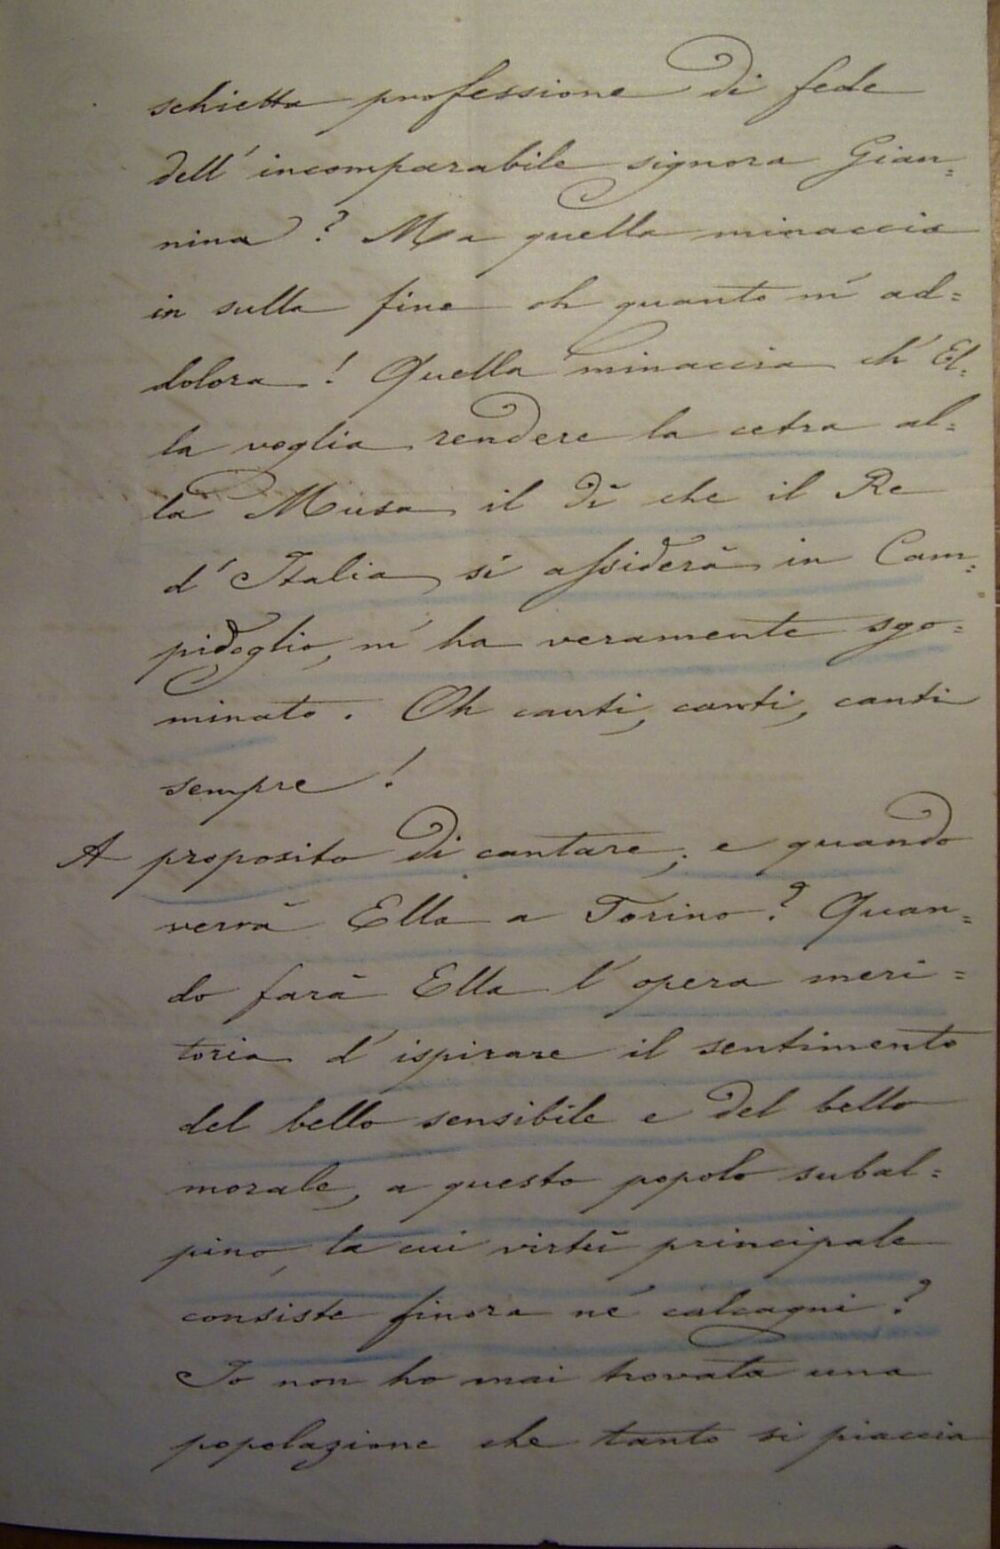 schietta professione di fede
dell' incomparabile signora Gian=
nina? Ma quella minaccia
in sulla fine oh quanto m' ad=
dolora! Quella minaccia ch' El=
la voglia rendere la cetra al=
la Musa il dì che il Re
d' Italia si assiderà in Cam=
pidoglio, m' ha veramente sgo=
minato. Oh canti, canti, canti
sempre!
A proposito di cantare; e quando
verrà Ella a Torino? Quan=
do farà Ella l' opera meri=
toria d' ispirare il sentimento
del bello sensibile e del bello
morale, a questo popolo subal=
pino, la cui virtù principale
consiste finora né calcagni?
Io non ho mai trovata una
popolazione che tanto si piaccia